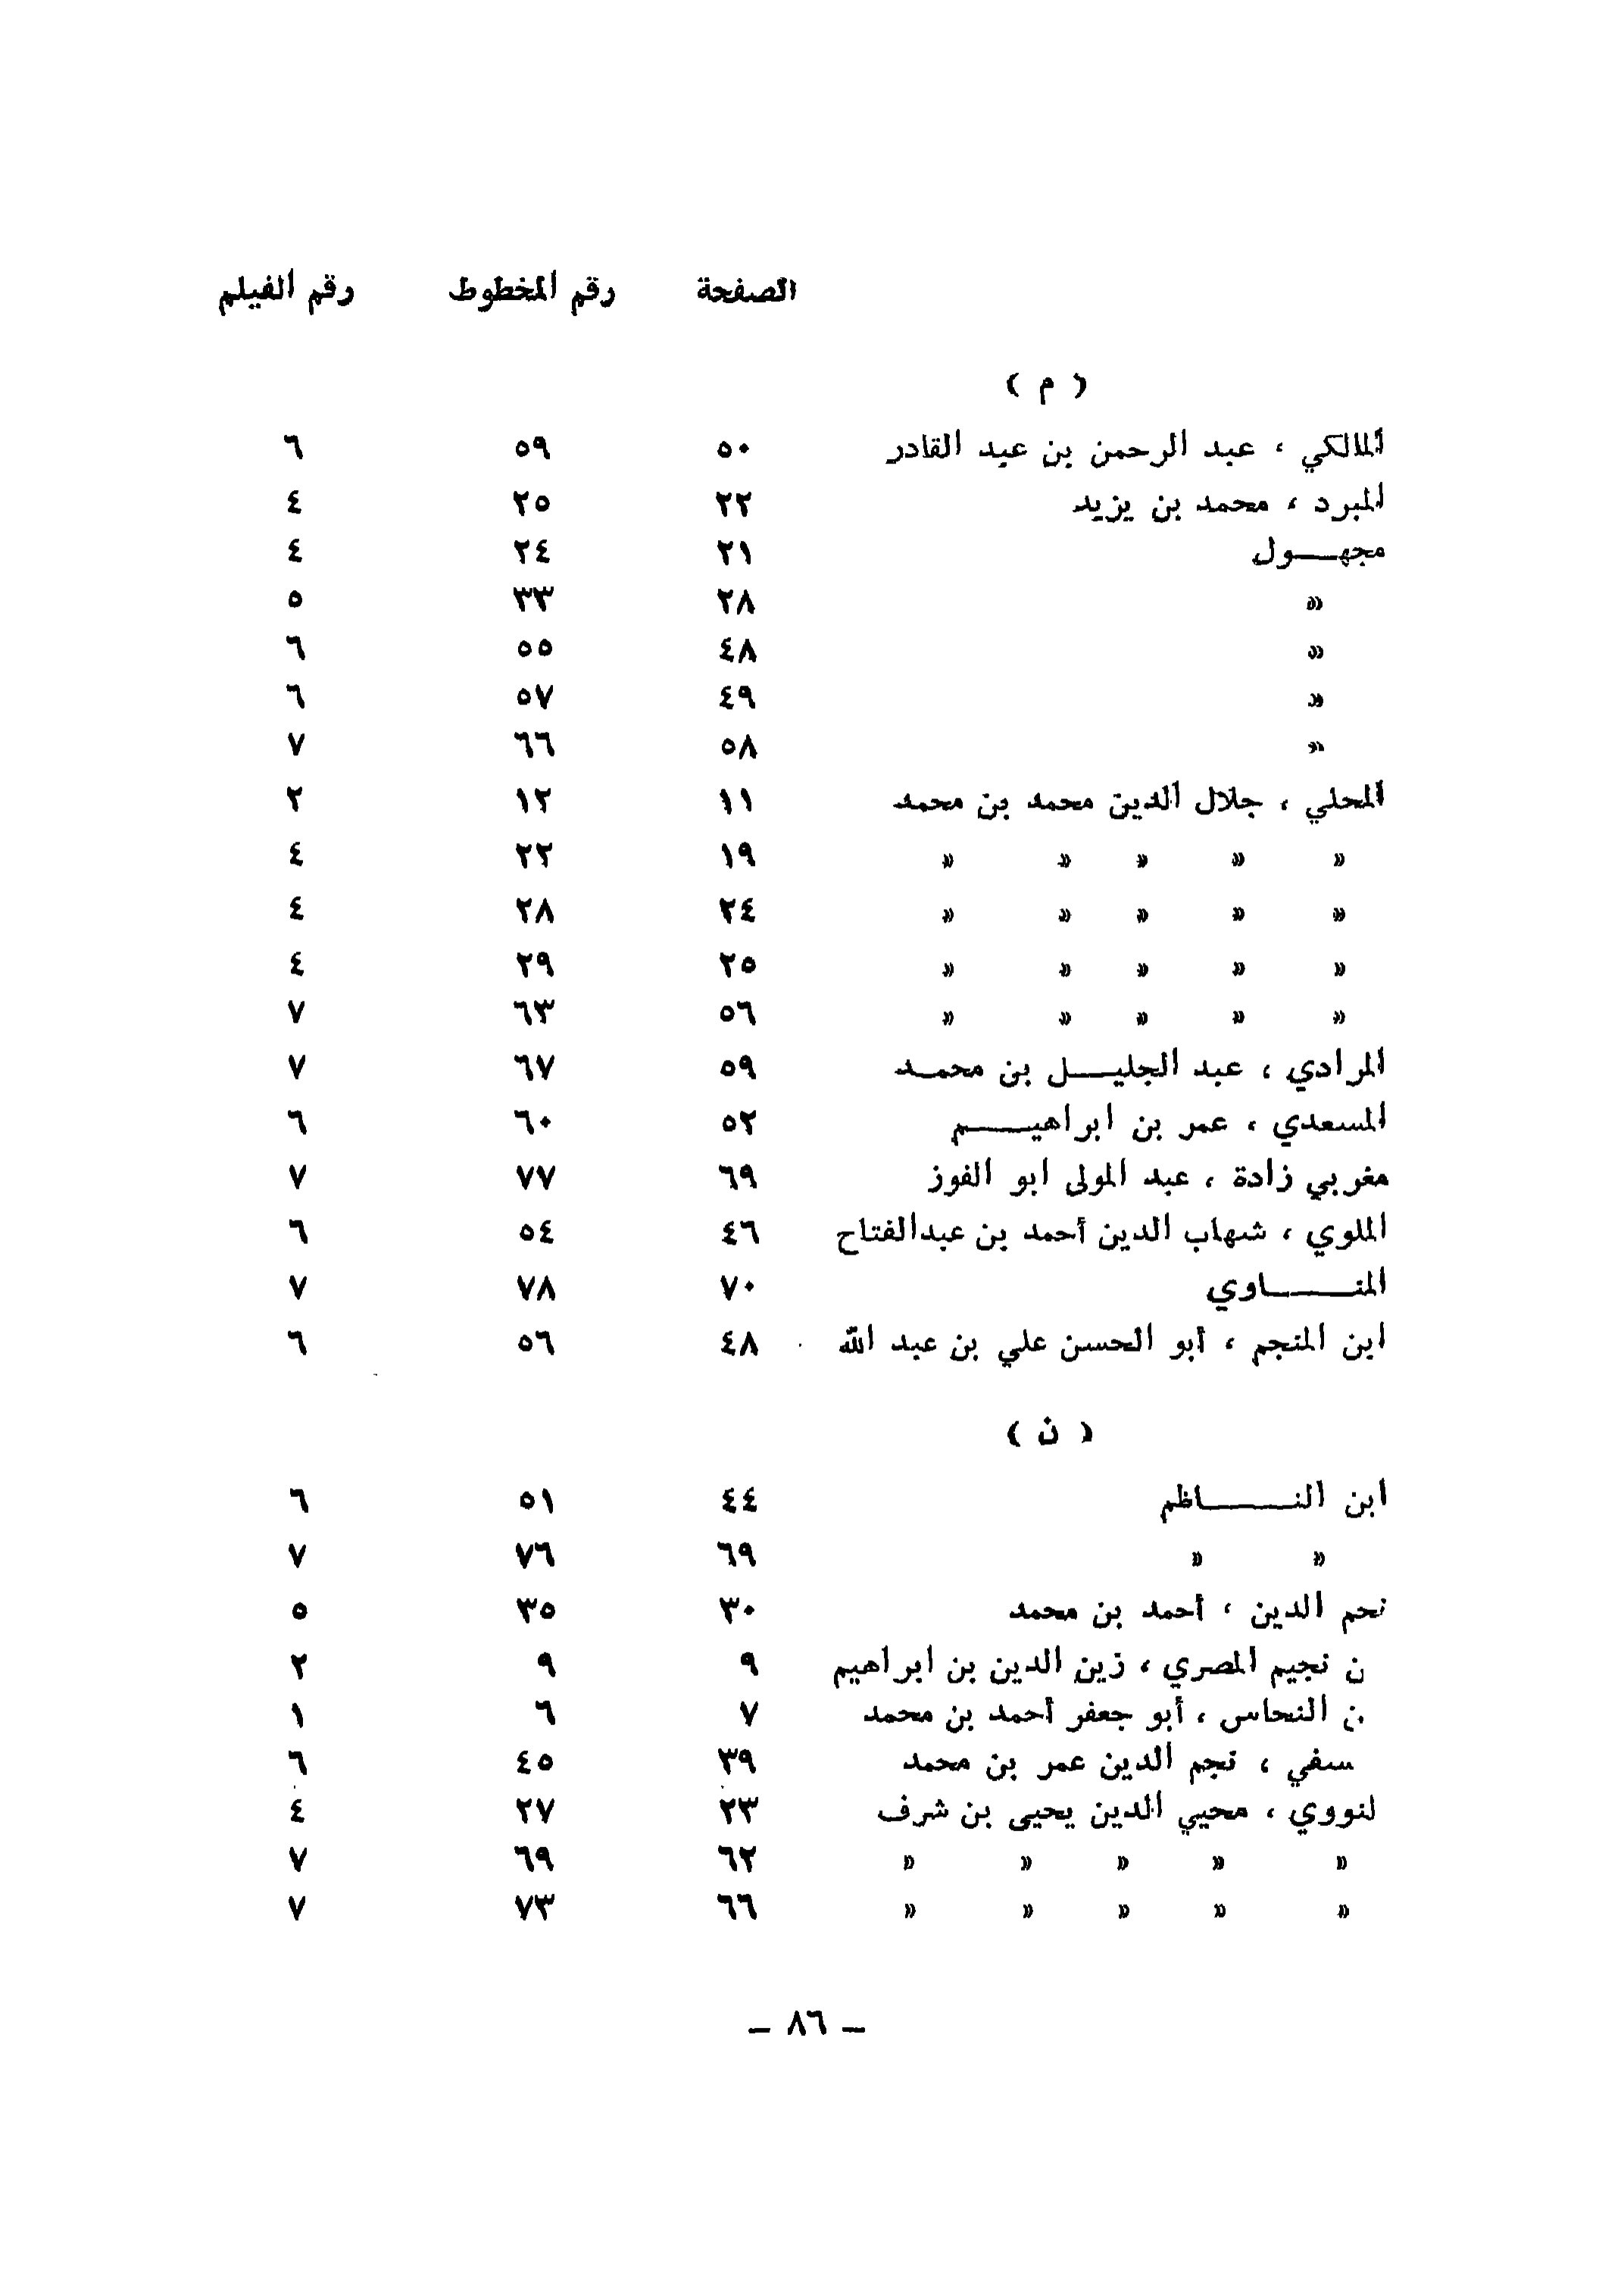 الصفحة رقم المخطوط رقم الفيلم
( م )
المالكي ، عبد الرحمن بن عبد القادر ٥٠ ٥٩ ٦
المبرد ، محمد بن يزيد ٢٢ ٢٥ ٤
مجهـــول ٢١ ٢٤ ٤
« ٢٨ ٣٣ ٥
« ٤٨ ٥٥ ٦
« ٤٩ ٥٧ ٦
« ٥٨ ٦٦ ٧
المحلي ، جلال الدين محمد بن محمد ١١ ١٢ ٢
« « « « « ١٩ ٢٢ ٤
« « « « « ٢٤ ٢٨ ٤
« « « « « ٢٥ ٢٩ ٤
« « « « « ٥٦ ٦٣ ٧
المرادي ، عبد الجليـــل بن محمـد ٥٩ ٦٧ ٧
المسعدي ، عمر بن ابراهيـــــم ٥٢ ٦٠ ٦
مغربي زادة ، عبد المولى ابو الفوز ٦٩ ٧٧ ٧
الملوي ، شهاب الدين أحمد بن عبدالفتاح ٤٦ ٥٤ ٦
المنـــــــاوي ٧٠ ٧٨ ٧
ابن المنجم ، أبو الحسن علي بن عبد الله ٤٨ ٥٦ ٦
( ن )
ابن النـــــــاظم ٤٤ ٥١ ٦
« « ٦٩ ٧٦ ٧
نجم الدين ، أحمد بن محمد ٣٠ ٣٥ ٥
ن نجيم المصري ، زين الدين بن ابراهيم ٩ ٩ ٢
ن النحاس ، أبو جعفر أحمد بن محمد ٧ ٦ ١
سفي ، نجم الدين عمر بن محمد ٣٩ ٤٥ ٦
لنووي ، محيي الدين يحيى بن شرف ٢٣ ٢٧ ٤
« « « « « ٦٢ ٦٩ ٧
« « « « « ٦٦ ٧٣ ٧
– ٨٦ –